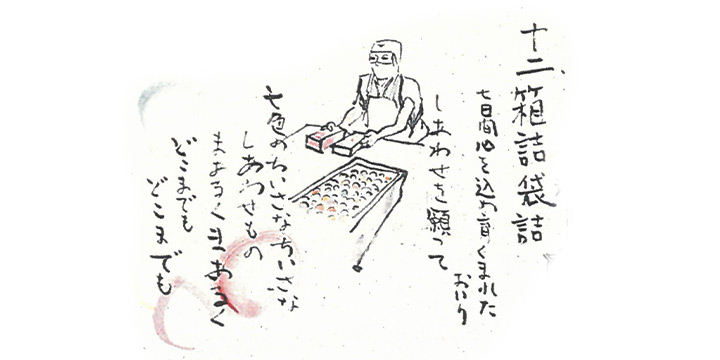 十二、箱詰袋詰
七日間心を込め育くまれた
おいり
しあわせを願って
七色のちいさなちいさな
しあわせもの
まあるくまあるく
どこまでも
どこまでも